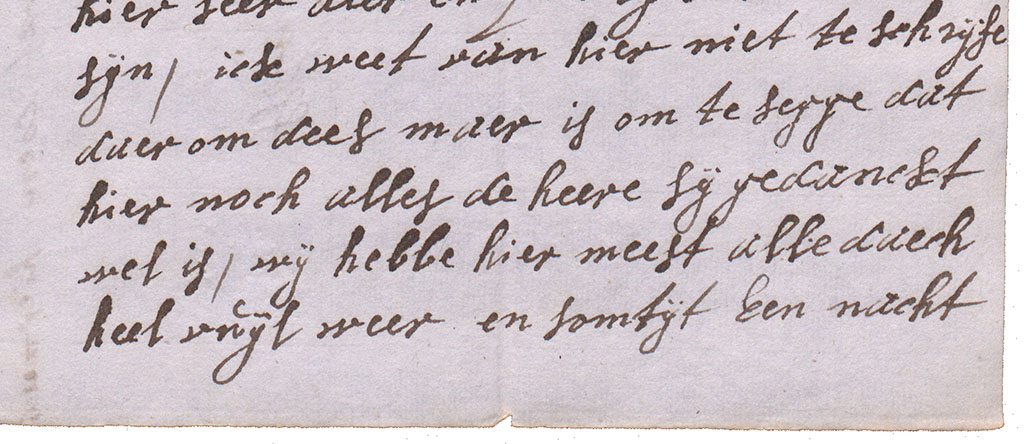 hier seer
syn / ick weet van hier niet te schryfe
daerom dees maer is om te segge dat
hier noch alles de heere sÿ gedanckt
wel is / wÿ hebbe hier meest alle daech
heel vuÿl weer en somtÿt Een nacht